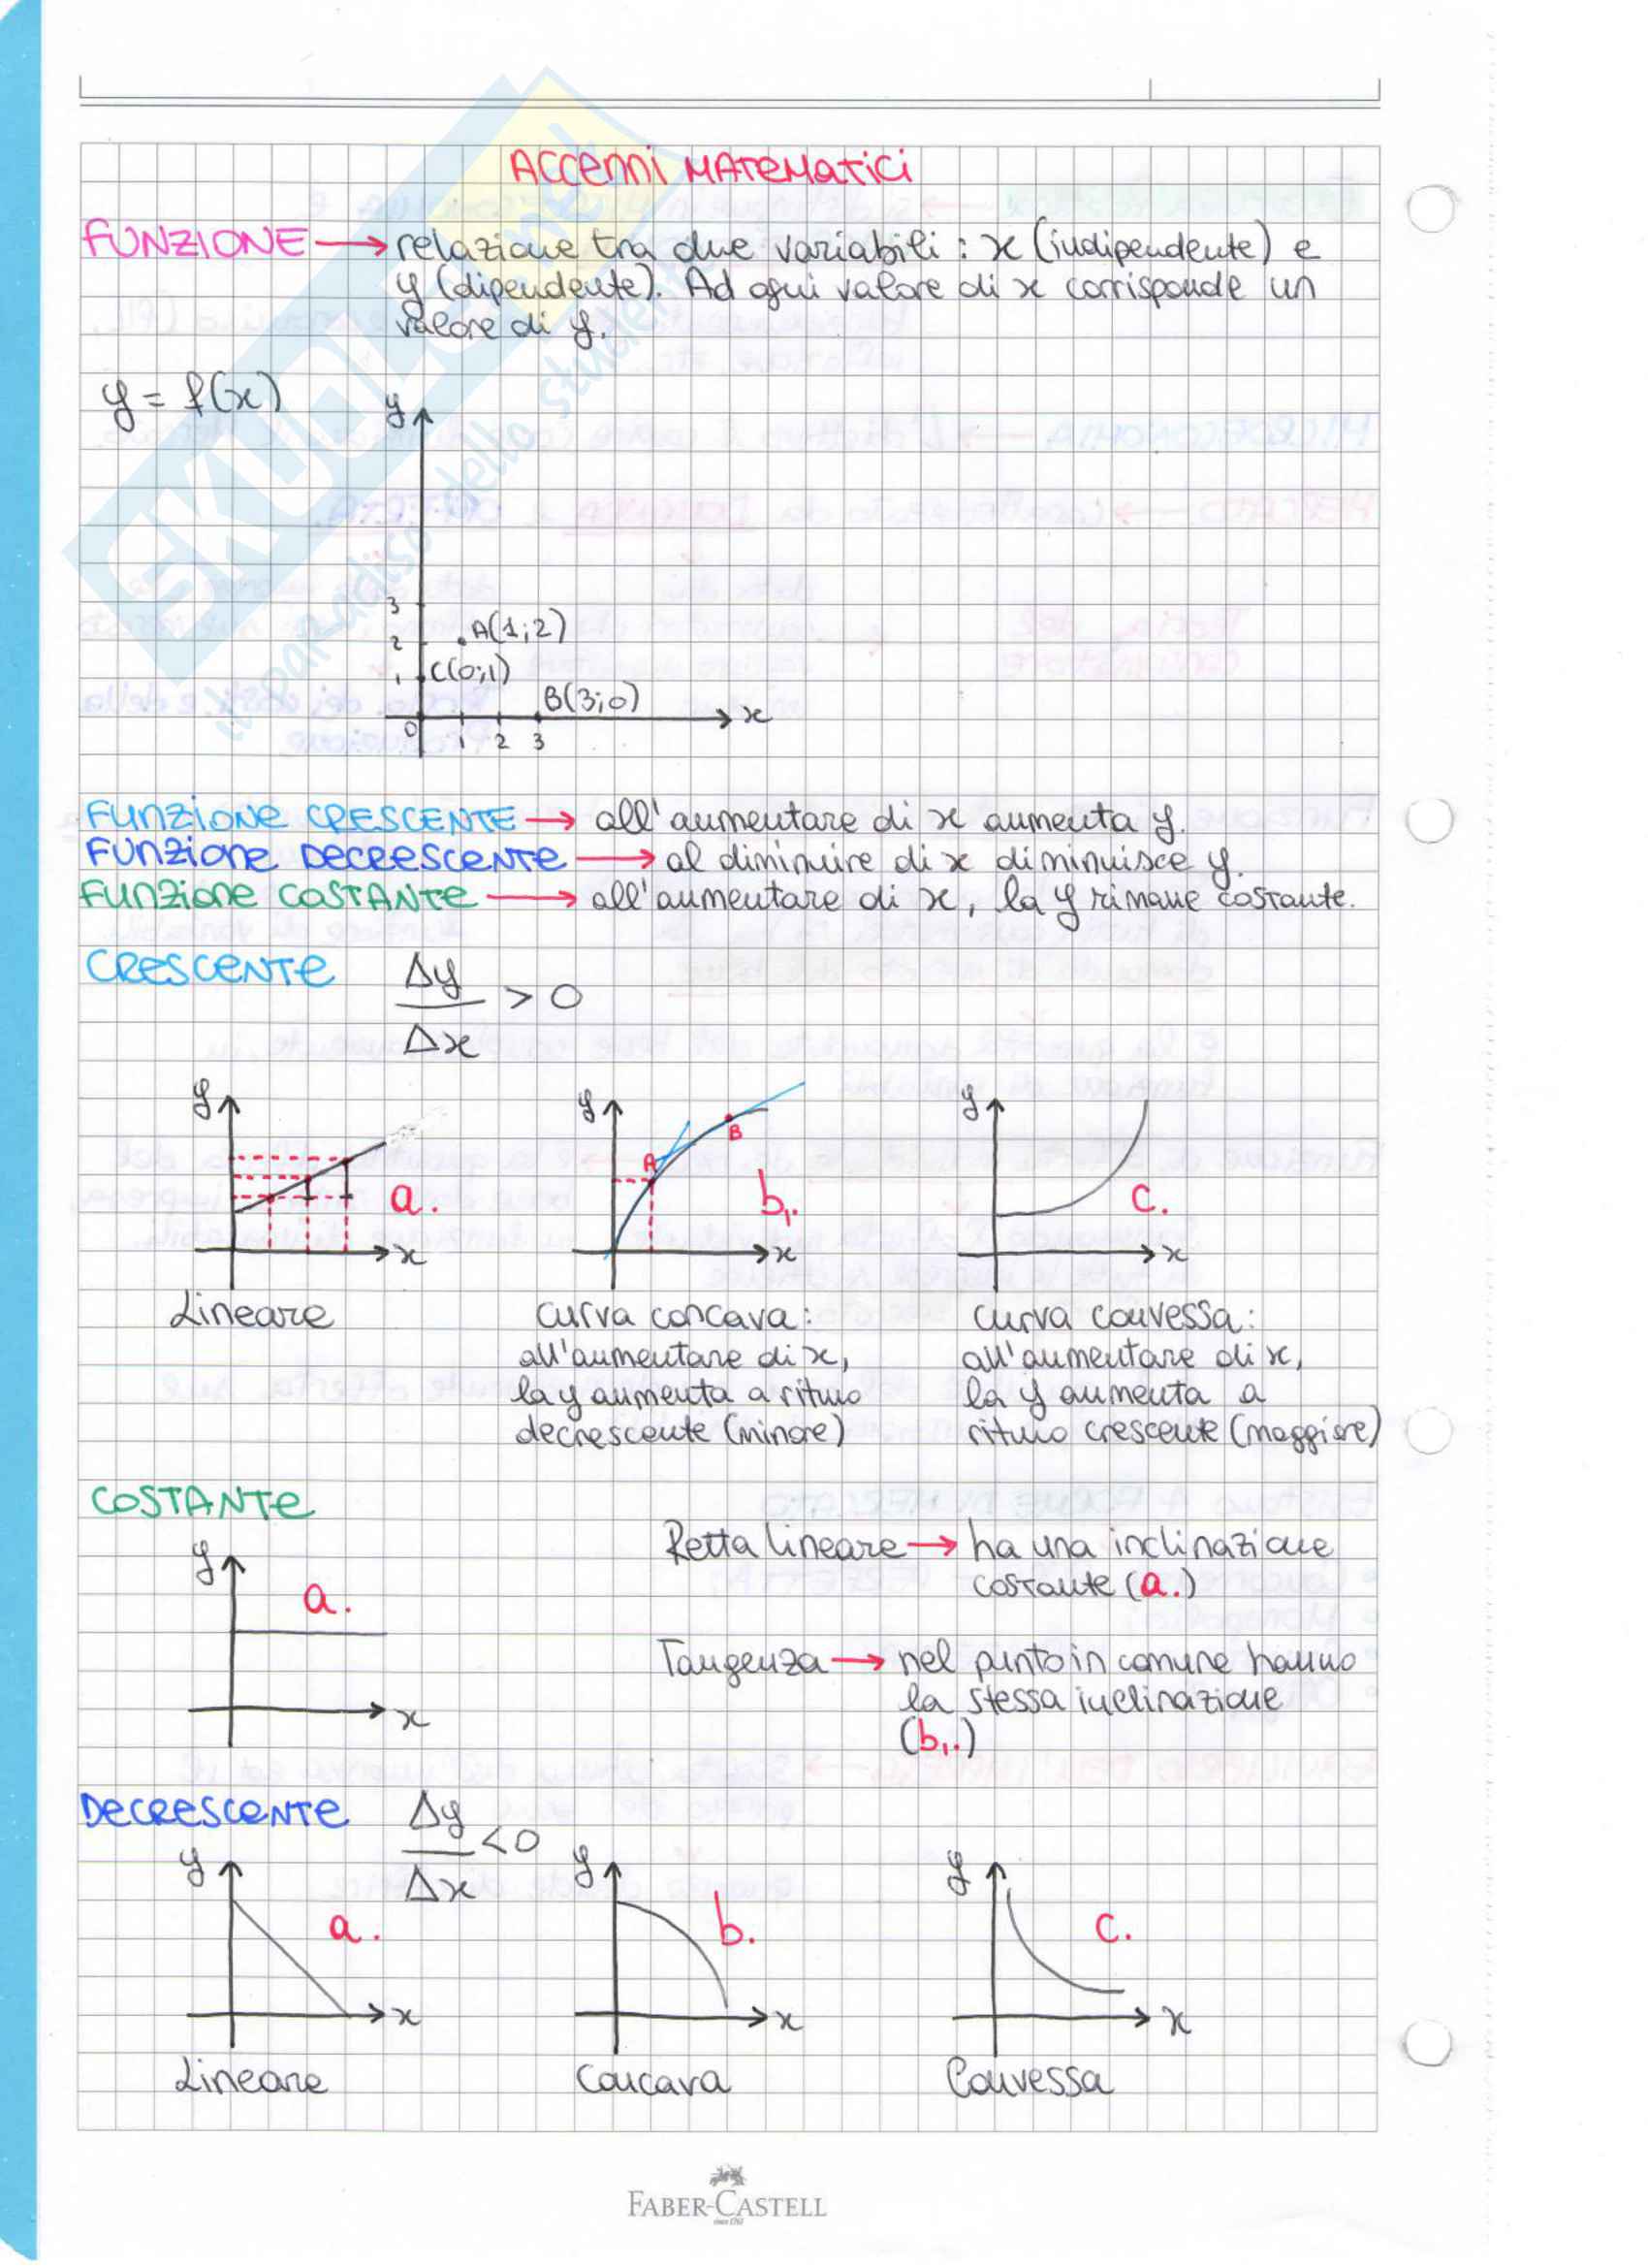 ACCENNI MATEMATICI
FUNZIONE → relazione tra due variabili : x (indipendente) e
y (dipendente). Ad ogni valore di x corrisponde un
valore di y.
y = f(x)
y
3
2
1
A(1;2)
C(0;1)
B(3;0)
x
0
1 2 3
FUNZIONE CRESCENTE → all'aumentare di x aumenta y.
FUNZIONE DECRESCENTE → al diminuire di x diminuisce y.
FUNZIONE COSTANTE → all'aumentare di x, la y rimane costante.
CRESCENTE Δy/Δx > 0
y a. x
y A B b1. x
y c. x
Lineare
curva concava:
all'aumentare di x,
la y aumenta a ritmo
decrescente (minore)
curva convessa:
all'aumentare di x,
la y aumenta a
ritmo crescente (maggiore)
COSTANTE
y a. x
Retta lineare → ha una inclinazione
costante (a.)
Tangenza → nel punto in comune hanno
la stessa inclinazione
(b1.)
DECRESCENTE Δy/Δx < 0
y a. x
y b. x
y c. x
Lineare
Concava
Convessa
FABER-CASTELL
since 1761
SKUOLA.net
il paradiso dello studente